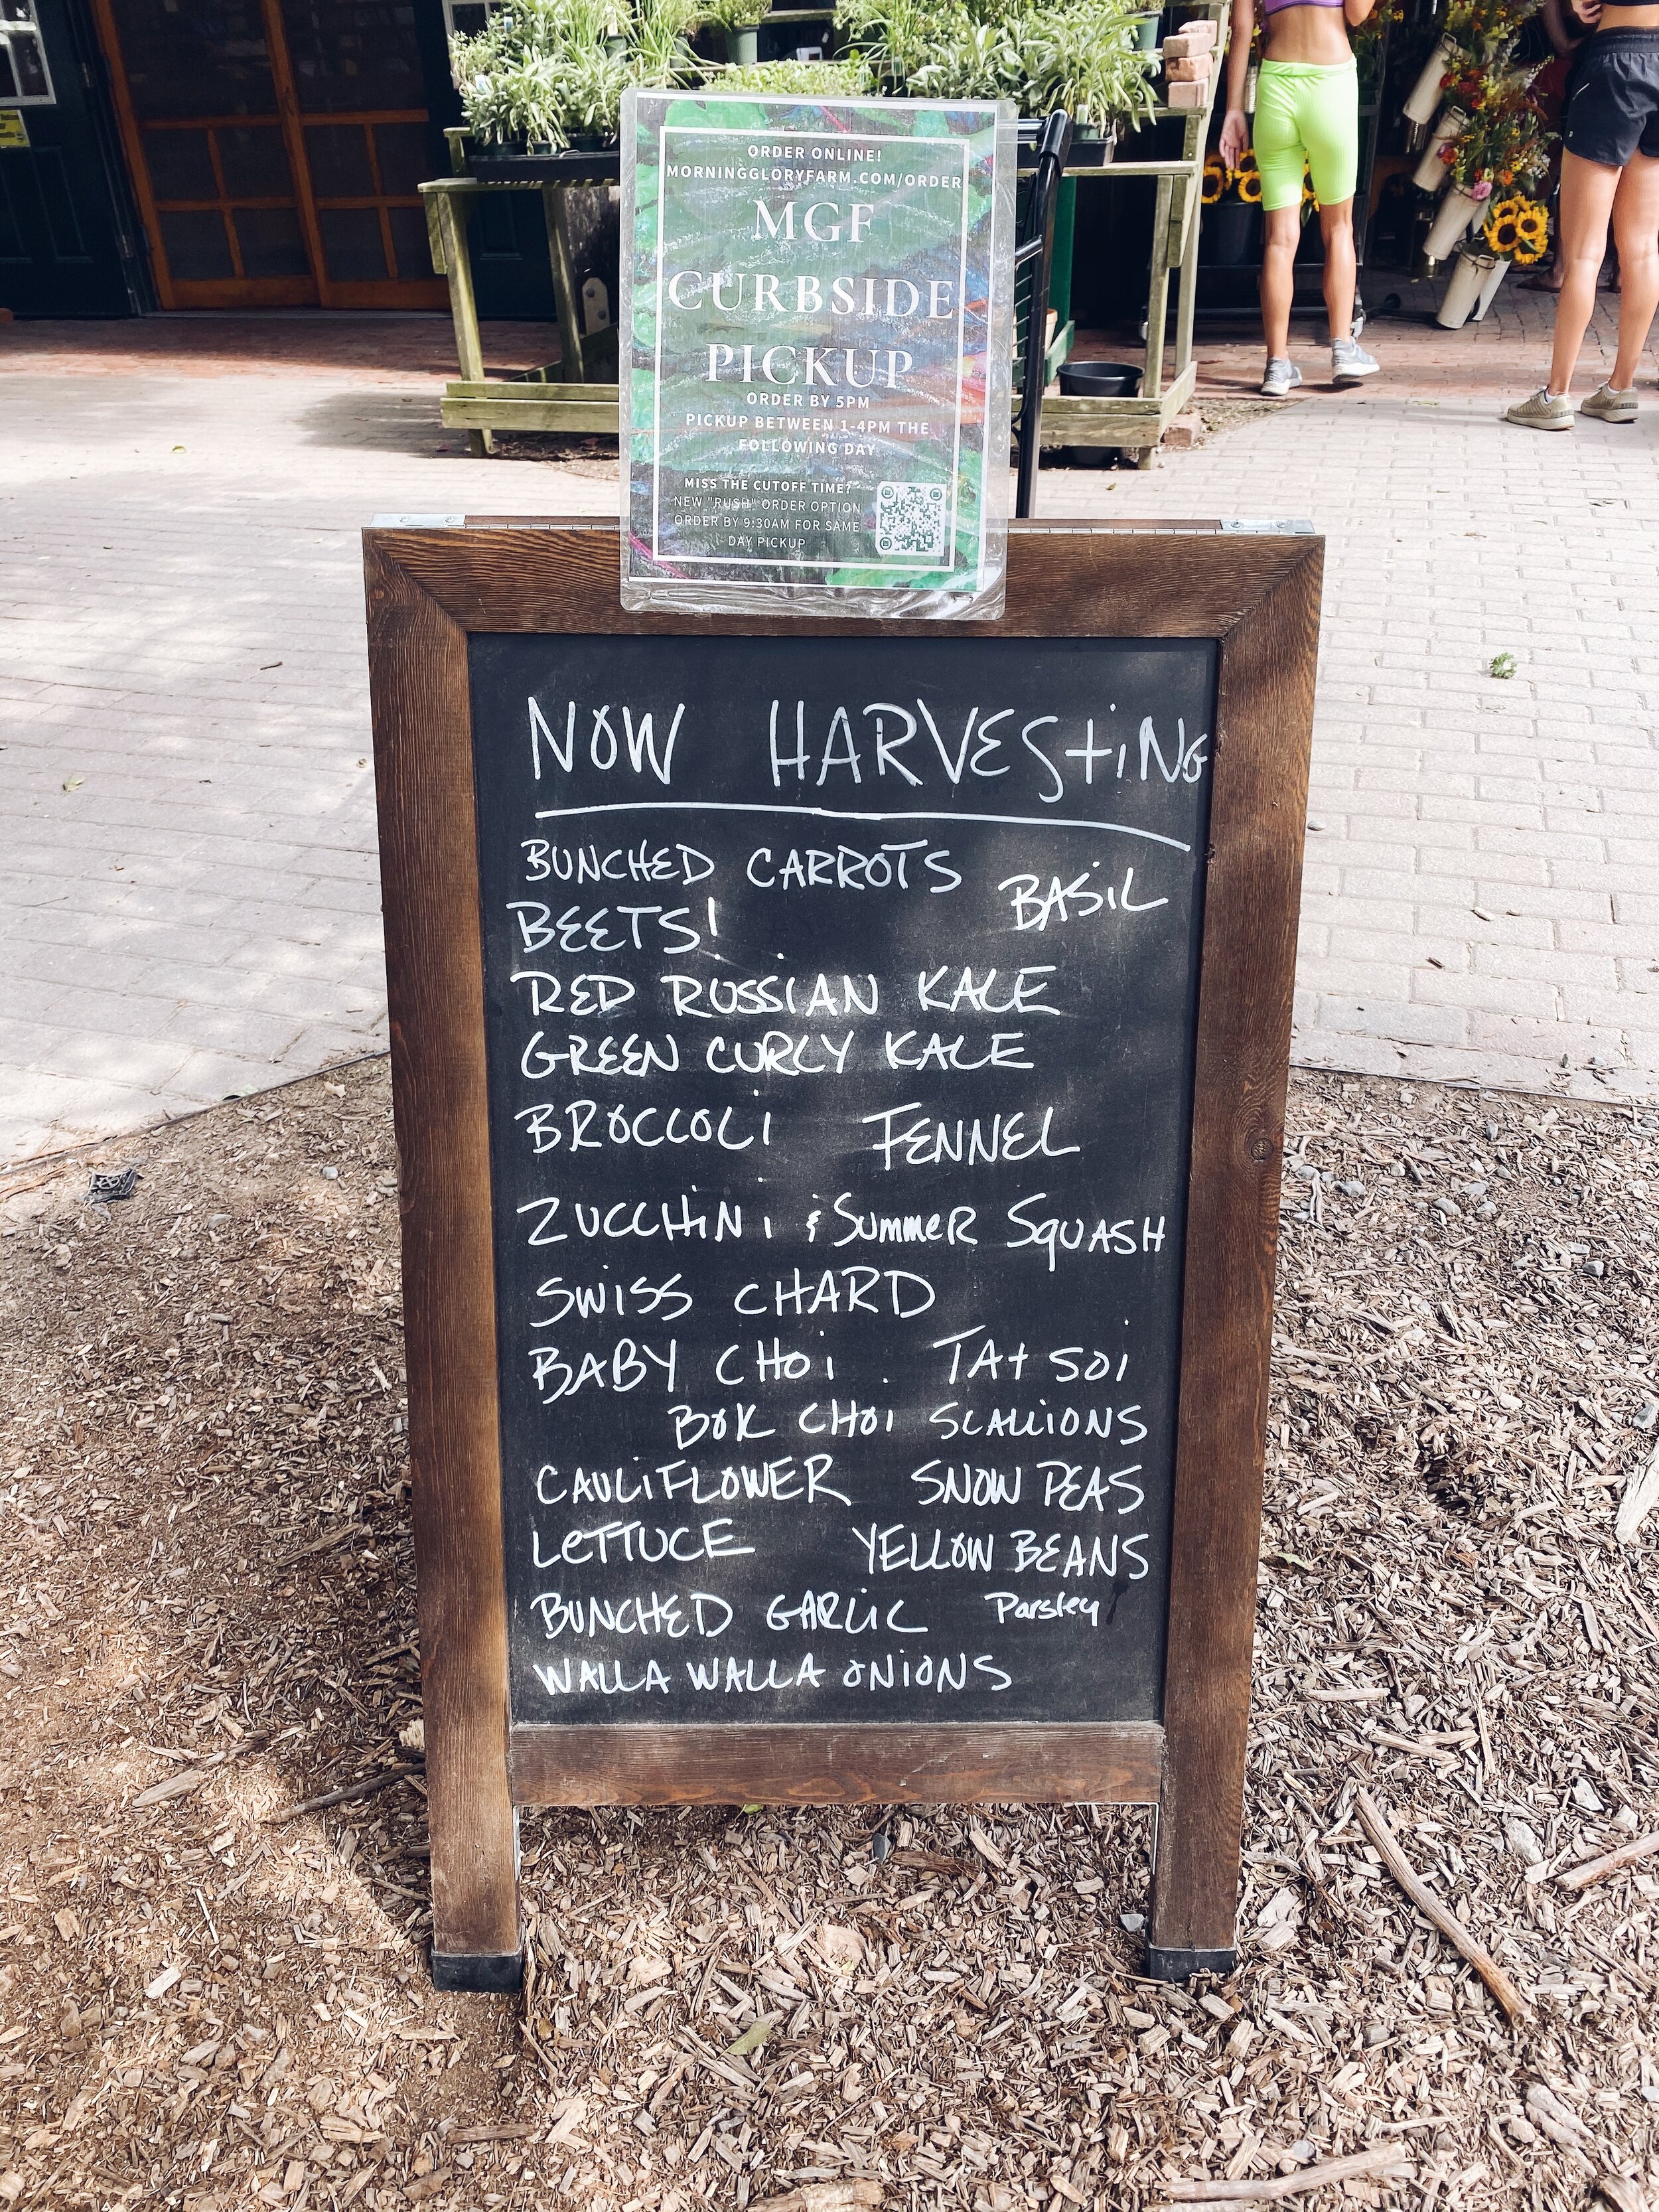 ORDER ONLINE!
MORNINGGLORYFARM.COM/ORDER
MGF
CURBSIDE
PICKUP
ORDER BY 5PM
PICKUP BETWEEN 1-4PM THE
FOLLOWING DAY
MISS THE CUTOFF TIME?
NEW "RUSH" ORDER OPTION
ORDER BY 9:30AM FOR SAME
DAY PICKUP
NOW HARVESTING
BUNCHED CARROTS
BASIL
BEETS!
RED RUSSIAN KALE
GREEN CURLY KALE
BROCCOLI FENNEL
ZUCCHINI & SUMMER SQUASH
SWISS CHARD
BABY CHOI . TAT SOI
BOK CHOI SCALLIONS
CAULIFLOWER SNOW PEAS
LETTUCE YELLOW BEANS
BUNCHED GARLIC Parsley
WALLA WALLA ONIONS